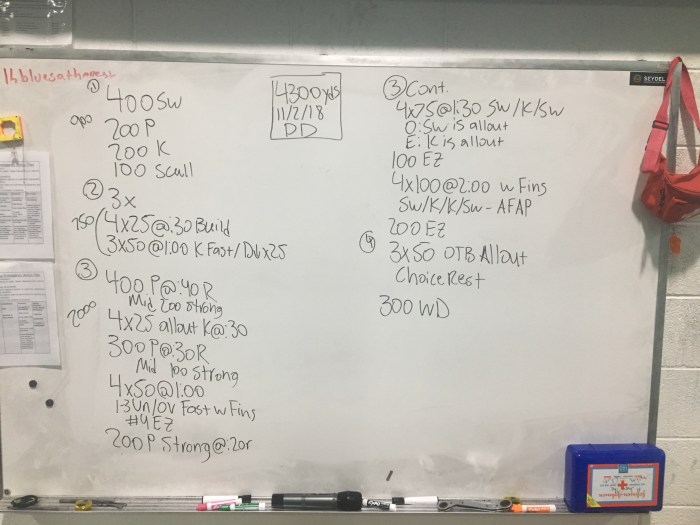 1hbluesathmpest
①
400 SW
900
200 P
200 K
100 Scull
②
3x
750
4x25@:30 Build
3x50@1:00 K Fast/Drbx25
③
400 P@:40 R
Mid 200 Strong
2000
4x25 allout K@:30
300 P@:30R
Mid 100 Strong
4x50@1:00
1-3 Un/OV Fast w Fins
#4 EZ
200 P Strong@:20r
4300 yds
11/2/18
DD
③ Cont.
4x75@1:30 SW/K/SW
O: SW is allout
E: K is allout
100 EZ
4x100@2:00 w Fins
SW/K/K/SW - AFAP
200 EZ
④ 3x50 OTB Allout
Choice Rest
300 WD
SEYDEL